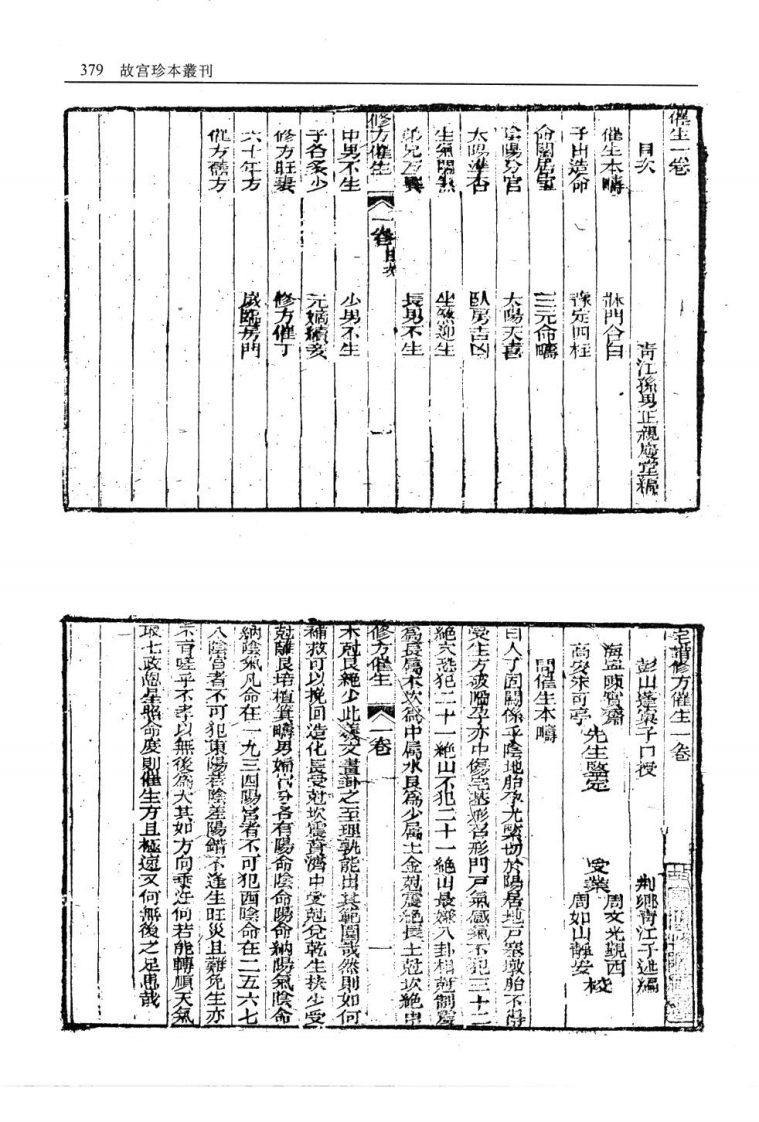 379 故宮珍本叢刊
催生一卷
目次 青江孫男正親慶堂編
催生本疇 牀門合白
子由造命 豫定四柱
命闕居室 三元命疇
陰陽分宮 太陽天喜
太陽準否 臥房吉凶
生氣關煞 坐煞迎生
弟兄互異 長男不生
修方催生 一卷 目次 一
中男不生 少男不生
子各多少 元嫡續妾
修方旺妻 修方催丁
六十年方 歲臨房門
催方舊方
宅譜修方催生一卷
彭山蓬萊子口授 荆鄉青江子述編
海盐 先生鑒定 受業 周文光覲西 校
高安朱可亭 周如山靜安
問催生本疇
曰人丁固關係乎陰地胎孕尤緊切於陽居地戶塞墩胎不得
受生方破陷孕亦中傷宅基形召形門戶氣感氣不犯三十二
絕穴恐犯二十一絕山不犯二十一絕山最嫌八卦相尅制震
為長屬木坎為中屬水艮為少屬土金尅震絕長土尅坎絕中
修方催生 一卷 一
木尅艮絕少此羲文畫卦之至理孰能出其範圍哉然則如何
補救可以挽回造化長受尅坎震資濟中受尅兌乾生扶少受
尅離艮培植箕疇男婦宮分各有陽命陰命陽命納陽氣陰命
納陰氣凡命在一九三四陽宮者不可犯西陰命在二五六七
八陰宮者不可犯東陽若陰差陽錯不逢生旺災且難免生亦
不育嗟乎不孝以無後為大其如方向乖迕何若能轉順天氣
取七政恩星照命度則催生方且極速又何無後之足患哉